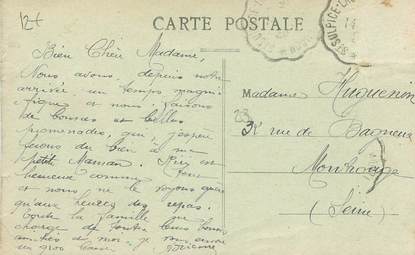 12f
CARTE POSTALE
ST SULPICE-L
14
Bien Chère Madame,
Nous avons, depuis notre
arrivée un temps magni
fique et nous faisons
de bonnes et belles
promenades, qui, j'espère
feront du bien à ma
petite Maman. Pierj est
heureux comme
et nous ne le voyons guère
qu'aux heures des repas.
Toute la famille me
charge de toutes leurs bonnes
amitiés et moi je vous envoie
un gros baiser.
Madame Huguenon
33
rue de Bagneux
Montrouge
(Seine)